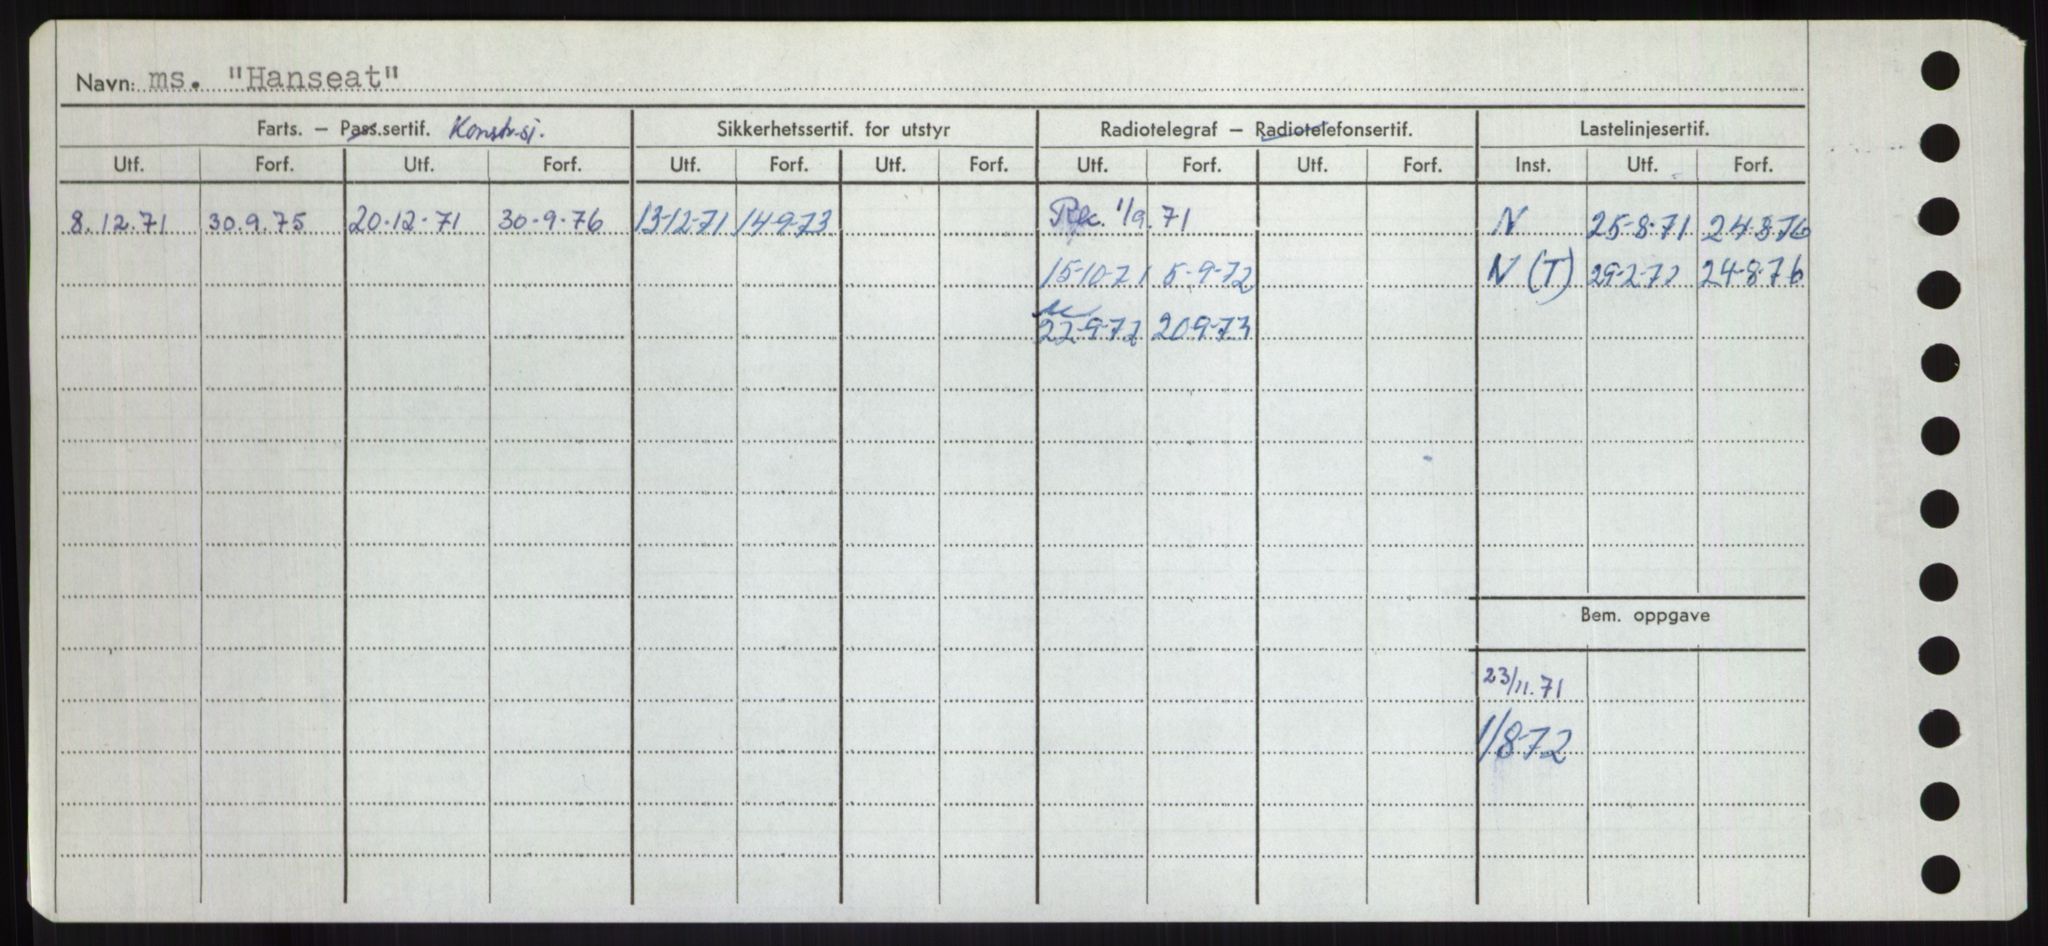 Navn: ms. "Hanseat"
Farts. – Pass.sertif. Konstr.sj. Sikkerhetssertif. for utstyr Radiotelegraf – Radiotelefonsertif. Lastelinjesertif.
Utf. Forf. Utf. Forf. Utf. Forf. Utf. Forf. Utf. Forf. Utf. Forf. Inst. Utf. Forf.
8.12.71 30.9.75 20-12-71 30-9-76 13-12-71 14-9-73 1/9.71 N 25-8-71 24-8-76
15-10-71 5-9-72 N (T) 29-2-72 24-8-76
22-9-72 20-9-73
Bem. oppgave
23/11.71
1/8-72